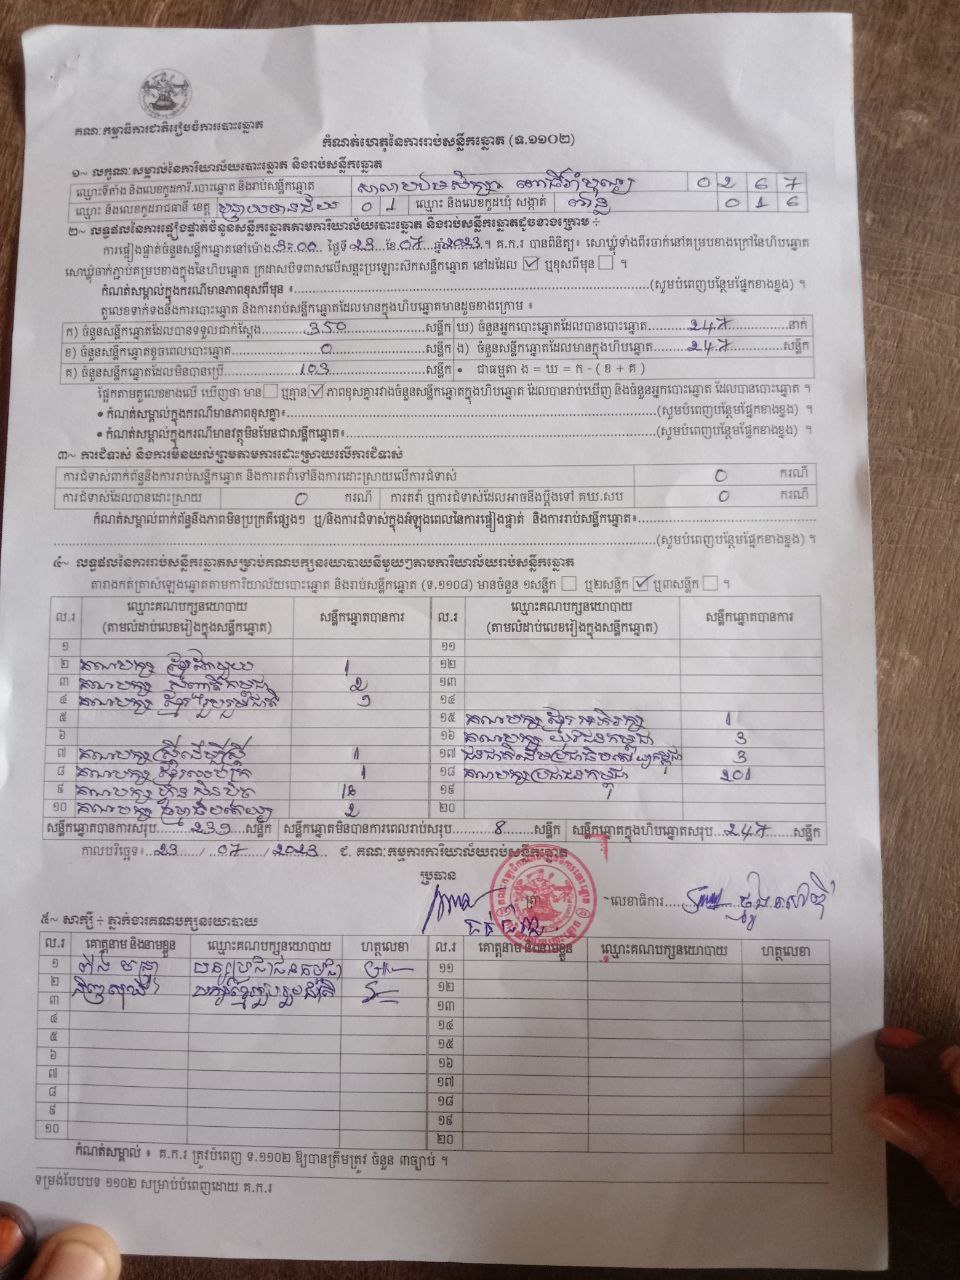 គណៈកម្មាធិការជាតិរៀបចំការបោះឆ្នោត
កំណត់ហេតុនៃការរាប់សន្លឹកឆ្នោត (ទ.១១០២)
១~ លក្ខណៈសម្គាល់នៃការិយាល័យបោះឆ្នោត និងរាប់សន្លឹកឆ្នោត
ឈ្មោះទីតាំង និងលេខកូដការិ.បោះឆ្នោត និងរាប់សន្លឹកឆ្នោត 0 2 6 7
ឈ្មោះ និងលេខកូដរាជធានី ខេត្ត បន្ទាយមានជ័យ 0 1 ឈ្មោះ និងលេខកូដឃុំ សង្កាត់ 0 1 6
២~ លទ្ធផលនៃការផ្ទៀងផ្ទាត់ចំនួនសន្លឹកឆ្នោតតាមការិយាល័យបោះឆ្នោត និងរាប់សន្លឹកឆ្នោតដូចខាងក្រោម ÷
ការផ្ទៀងផ្ទាត់ចំនួនសន្លឹកឆ្នោតនៅម៉ោង 3:00 ថ្ងៃទី 23 ខែ 07 ឆ្នាំ 2023 ។ គ.ក.រ បានពិនិត្យ៖ សោឃ្លុំទាំងពីរចាក់នៅគម្របខាងក្រៅនៃហិបឆ្នោត
សោឃ្លុំចាក់ភ្ជាប់គម្របខាងក្នុងនៃហិបឆ្នោត ក្រដាសបិទពាសលើសន្ទះប្រឡោះស៊កសន្លឹកឆ្នោត នៅដដែល ☑ ឬខុសពីមុន ☐ ។
កំណត់សម្គាល់ក្នុងករណីមានភាពខុសពីមុន ៖ (សូមបំពេញបន្ថែមផ្នែកខាងខ្នង) ។
តួលេខទាក់ទងនឹងការបោះឆ្នោត និងការរាប់សន្លឹកឆ្នោតដែលមានក្នុងហិបឆ្នោតមានដូចខាងក្រោម ៖
ក) ចំនួនសន្លឹកឆ្នោតដែលបានទទួលជាក់ស្តែង 350 សន្លឹក ឃ) ចំនួនអ្នកបោះឆ្នោតដែលបានបោះឆ្នោត 247 នាក់
ខ) ចំនួនសន្លឹកឆ្នោតខូចពេលបោះឆ្នោត 0 សន្លឹក ង) ចំនួនសន្លឹកឆ្នោតដែលមានក្នុងហិបឆ្នោត 247 សន្លឹក
គ) ចំនួនសន្លឹកឆ្នោតដែលមិនបានប្រើ 103 សន្លឹក • ជាធម្មតា ង = ឃ = ក - ( ខ + គ )
ផ្អែកតាមតួលេខខាងលើ ឃើញថា មាន ☐ ឬគ្មាន ☑ ភាពខុសគ្នារវាងចំនួនសន្លឹកឆ្នោតក្នុងហិបឆ្នោត ដែលបានរាប់ឃើញ និងចំនួនអ្នកបោះឆ្នោត ដែលបានបោះឆ្នោត ។
• កំណត់សម្គាល់ក្នុងករណីមានភាពខុសគ្នា៖ (សូមបំពេញបន្ថែមផ្នែកខាងខ្នង) ។
• កំណត់សម្គាល់ក្នុងករណីមានវត្ថុមិនមែនជាសន្លឹកឆ្នោត៖ (សូមបំពេញបន្ថែមផ្នែកខាងខ្នង) ។
៣~ ការជំទាស់ និងការមិនយល់ព្រមតាមការដោះស្រាយលើការជំទាស់
ការជំទាស់ពាក់ព័ន្ធនឹងការរាប់សន្លឹកឆ្នោត និងការតវ៉ាទៅនឹងការដោះស្រាយលើការជំទាស់ 0 ករណី
ការជំទាស់ដែលបានដោះស្រាយ 0 ករណី ការតវ៉ា ឬការជំទាស់ដែលអាចនឹងប្តឹងទៅ គឃ.សប 0 ករណី
កំណត់សម្គាល់ពាក់ព័ន្ធនឹងភាពមិនប្រក្រតីផ្សេងៗ ឬ/និងការជំទាស់ក្នុងអំឡុងពេលនៃការផ្ទៀងផ្ទាត់ និងការរាប់សន្លឹកឆ្នោត៖
(សូមបំពេញបន្ថែមផ្នែកខាងខ្នង) ។
៤~ លទ្ធផលនៃការរាប់សន្លឹកឆ្នោតសម្រាប់គណបក្សនយោបាយនីមួយៗតាមការិយាល័យរាប់សន្លឹកឆ្នោត
តារាងកត់ត្រាសំឡេងឆ្នោតតាមការិយាល័យបោះឆ្នោត និងរាប់សន្លឹកឆ្នោត (ទ.១១០៨) មានចំនួន ១សន្លឹក ☐ ឬ២សន្លឹក ☑ ឬ៣សន្លឹក ☐ ។
ល.រ ឈ្មោះគណបក្សនយោបាយ (តាមលំដាប់លេខរៀងក្នុងសន្លឹកឆ្នោត) សន្លឹកឆ្នោតបានការ ល.រ ឈ្មោះគណបក្សនយោបាយ (តាមលំដាប់លេខរៀងក្នុងសន្លឹកឆ្នោត) សន្លឹកឆ្នោតបានការ
១ ១១
២ គណបក្ស ខ្មែរតែមួយ 1 ១២
៣ គណបក្ស សំញាតិកម្ពុជា 2 ១៣
៤ គណបក្ស ខ្មែររួបរួមជាតិ ១៤
៥ ១៥ គណបក្ស ខ្មែរអភិរក្ស 1
៦ ១៦ គណបក្ស យុវជនកម្ពុជា 3
៧ គណបក្ស ស្ត្រីដើម្បីស្ត្រី 1 ១៧ ជនជាតិដើមប្រជាធិបតេយ្យកម្ពុជា 3
៨ គណបក្ស ខ្មែរឈប់ក្រ 1 ១៨ គណបក្សប្រជាជនកម្ពុជា 201
៩ គណបក្ស ហ្វ៊ុនស៊ិនប៉ិច 18 ១៩
១០ គណបក្ស ធម្មាធិបតេយ្យ 2 ២០
សន្លឹកឆ្នោតបានការសរុប 239 សន្លឹក សន្លឹកឆ្នោតមិនបានការពេលរាប់សរុប 8 សន្លឹក សន្លឹកឆ្នោតក្នុងហិបឆ្នោតសរុប 247 សន្លឹក
កាលបរិច្ឆេទ៖ 23 / 07 / 2023 ជ. គណៈកម្មការការិយាល័យរាប់សន្លឹកឆ្នោត
ប្រធាន
លេខាធិការ
៥~ សាក្សី ÷ ភ្នាក់ងារគណបក្សនយោបាយ
ល.រ គោត្តនាម និងនាមខ្លួន ឈ្មោះគណបក្សនយោបាយ ហត្ថលេខា ល.រ គោត្តនាម និងនាមខ្លួន ឈ្មោះគណបក្សនយោបាយ ហត្ថលេខា
១ បក្សប្រជាជនកម្ពុជា ១១
២ បក្សខ្មែររួបរួមជាតិ ១២
៣ ១៣
៤ ១៤
៥ ១៥
៦ ១៦
៧ ១៧
៨ ១៨
៩ ១៩
១០ ២០
កំណត់សម្គាល់ ៖ គ.ក.រ ត្រូវបំពេញ ទ.១១០២ ឱ្យបានត្រឹមត្រូវ ចំនួន ៣ច្បាប់ ។
ទម្រង់បែបបទ ១១០២ សម្រាប់បំពេញដោយ គ.ក.រ